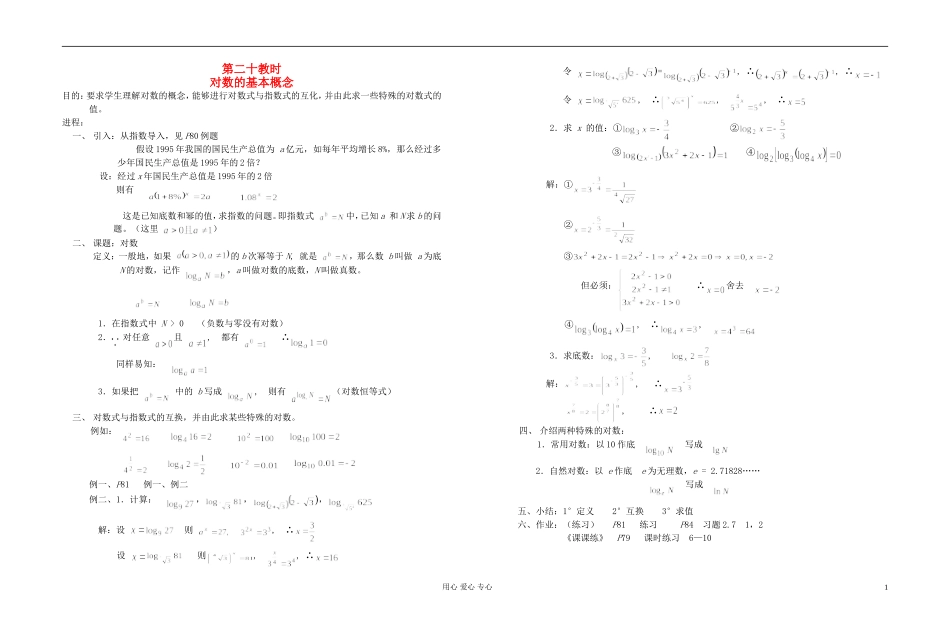 第二十教时
对数的基本概念
目的：要求学生理解对数的概念，能够进行对数式与指数式的互化，并由此求一些特殊的对数式的
值。
进程：
一、 引入：从指数导入，见 P80 例题
假设 1995 年我国的国民生产总值为 a 亿元，如每年平均增长 8%，那么经过多
少年国民生产总值是 1995 年的 2 倍？
设：经过 x 年国民生产总值是 1995 年的 2 倍
则有 a(1+8%)^x=2a 1.08^x=2
这是已知底数和幂的值，求指数的问题。即指数式 a^b=N 中，已知 a 和 N 求 b 的问
题。（这里 a>0且a≠1）
二、 课题：对数
定义：一般地，如果 a(a>0,a≠1) 的 b 次幂等于 N, 就是 a^b=N，那么数 b 叫做 a 为底
N 的对数，记作 log_a N=b，a 叫做对数的底数，N 叫做真数。
a^b=N log_a N=b
1．在指数式中 N > 0 （负数与零没有对数）
2．∵ 对任意 a>0 且 a≠1， 都有 a^0=1 ∴ log_a 1=0
同样易知： log_a a=1
3．如果把 a^b=N 中的 b 写成 log_a N， 则有 a^{log_a N}=N （对数恒等式）
三、 对数式与指数式的互换，并由此求某些特殊的对数。
例如： 4^2=16 log_4 16=2 10^2=100 log_10 100=2
4^{1/2}=2 log_4 2=1/2 10^{-2}=0.01 log_10 0.01=-2
例一、P81 例一、例二
例二、1．计算： log_9 27，log_{} 81，log_{(2+√3)}(2-√3)，log 625
解：设 x=log_9 27 则 9^x=27, 3^{}=3^3， ∴ x=3/2
设 x=log_{} 81 则 ， ∴ x=16
令 x=log_{(2+√3)}(2-√3)=log_{(2+√3)}(2+√3)^{-1}，∴ (2+√3)^x=(2+√3)^{-1}，∴ x=-1
令 x=log 625， ∴ =625， ， ∴ x=5
2．求 x 的值：① log_3 x=-3/4 ② log_2 x=-5/3
③ log_{(2x^2-1)}(3x^2+2x-1)=1 ④ log_2[log_3(log_4 x)]=0
解：① x=3^{-3/4}=1/⁴√27
②
③ 3x^2+2x-1=2x^2-1 ⇒ x^2+2x=0 ⇒ x=0, x=-2
但必须： 2x^2-1>0 2x^2-1≠1 3x^2+2x-1>0 ∴ x=0 舍去 x=-2
④ log_3(log_4 x)=1， ∴ log_4 x=3， x=4^3=64
3．求底数： log_x 3=-3/5， log_x 2=7/8
解： ， ∴ x=3^{-5/3}
， ∴ x=2
四、 介绍两种特殊的对数：
1．常用对数：以 10 作底 log_10 N 写成 lgN
2．自然对数：以 e 作底 e 为无理数，e = 2.71828……
log_e N 写成 lnN
五、小结：1°定义 2°互换 3°求值
六、作业：（练习） P81 练习 P84 习题 2.7 1，2
《课课练》 P79 课时练习 6—10
用心 爱心 专心
1